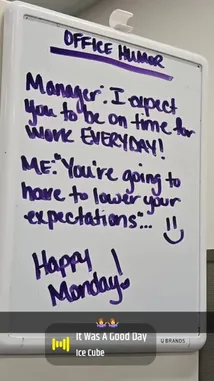 OFFICE HUMOR
Manager: I expect
you to be on time for
work EVERYDAY!
ME:"You're going to
have to lower your
expectations"...
Happy
Monday!
U BRANDS
It Was A Good Day
Ice Cube